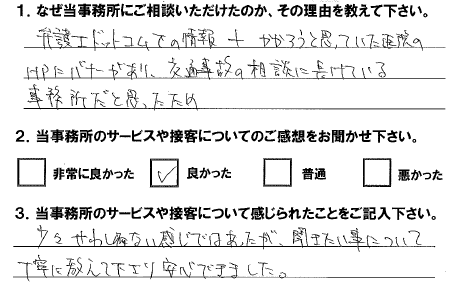 1. なぜ当事務所にご相談いただけたのか、その理由を教えて下さい。
弁護士ドットコムでの情報 + かかろうと思っていた医院の
HPにバナーがあり、交通事故の相談に長けている
事務所だと思ったため
2. 当事務所のサービスや接客についてのご感想をお聞かせ下さい。
非常に良かった ✓ 良かった 普通 悪かった
3. 当事務所のサービスや接客について感じられたことをご記入下さい。
少々せわしない感じではあったが、聞きたい事について
丁寧に教えて下さり安心できました。